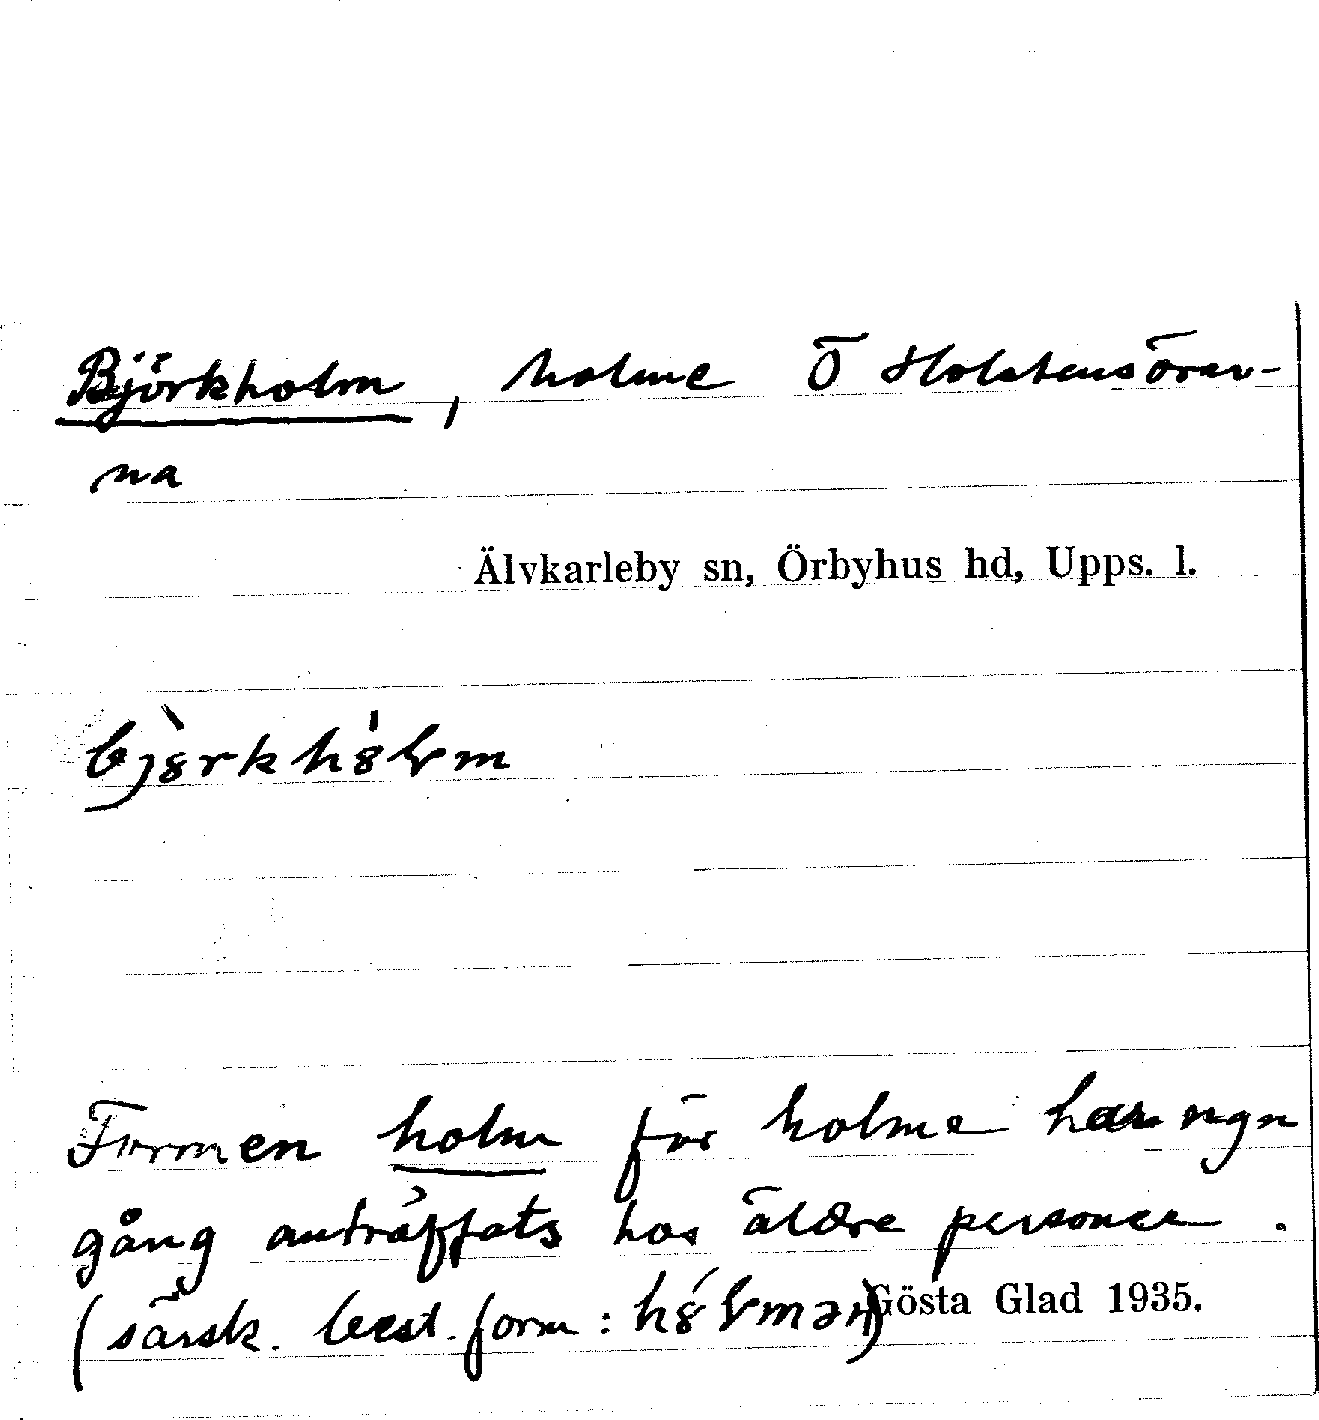 Björkholm, holme Ö Holstensörar-
na
Älvkarleby sn, Örbyhus hd, Upps. l.
bjɞ̀rkhɞ́ɽm
Formen holm för holme har ngn
gång anträffats hos äldre personer.
(särsk. best. form: hɞ́ɽmən)
Gösta Glad 1935.